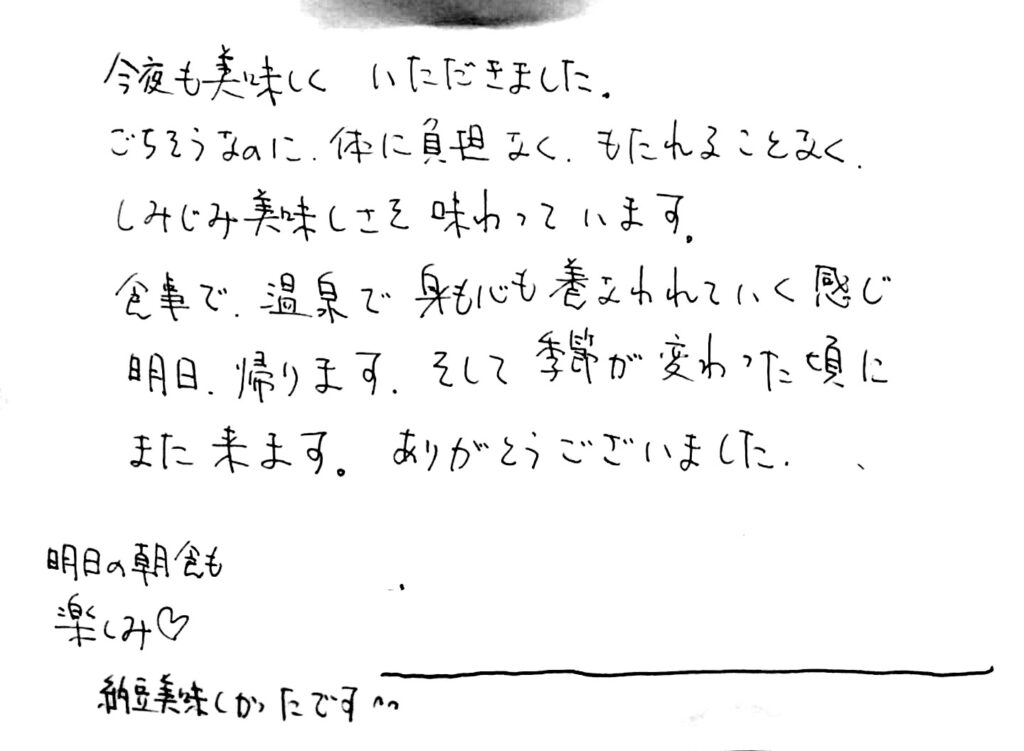 今夜も美味しく いただきました。
ごちそうなのに、体に負担なく、もたれることなく、
しみじみ美味しさを味わっています。
食事で、温泉で身も心も養なわれていく感じ
明日、帰ります、そして季節が変わった頃に
また来ます。ありがとうございました、
明日の朝食も
楽しみ♡
納豆美味しかったです^^